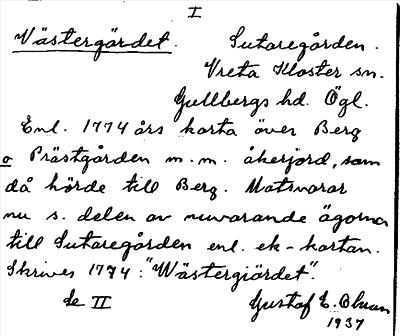 I
Västergärdet. Sutaregården.
Vreta Kloster sn.
Gullbergs hd. Ögl.
Enl. 1774 års karta över Berg
o Prästgården m. m. åkerjord, som
då hörde till Berg. Motsvarar
nu s. delen av nuvarande ägorna
till Sutaregården enl. ek-kartan.
Skrives 1774: "Wästergiärdet".
se II Gustaf E. Olsson
1937